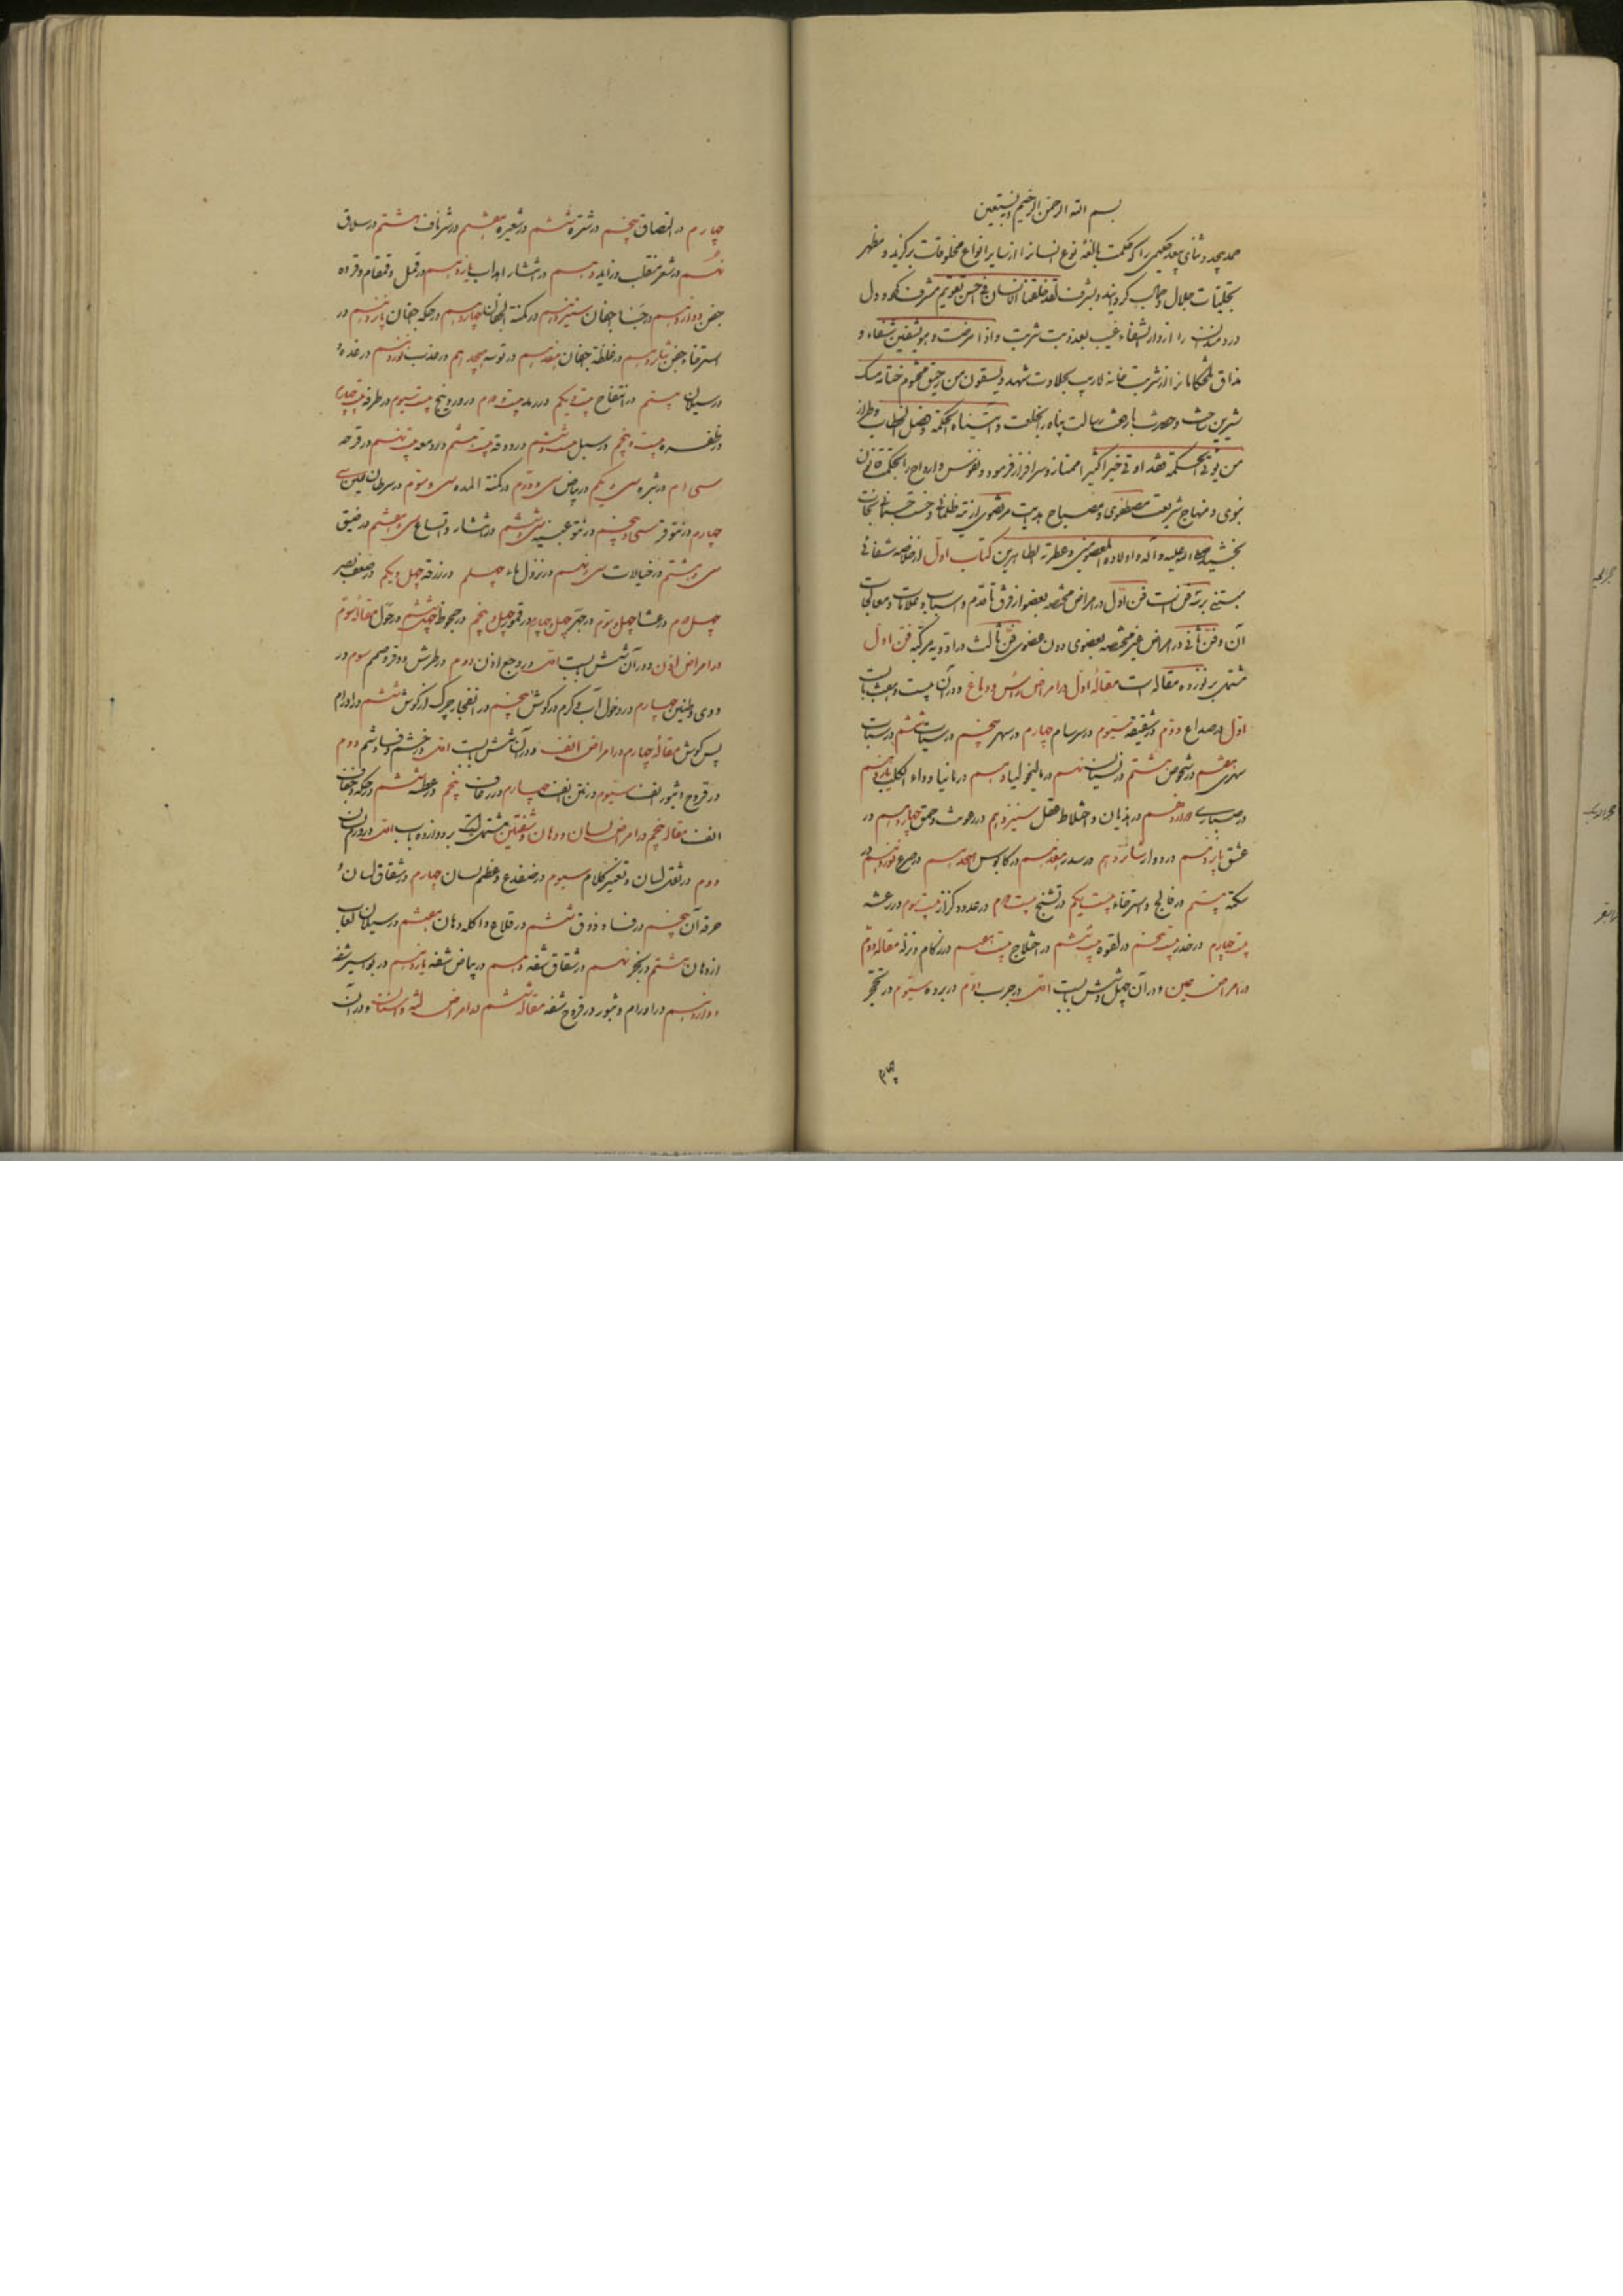 بسم الله الرحمن الرحیم و نستعین
حمد بیحد و ثنای بیعد حکیمی را که بحکمت بالغه نوع انسانرا از سایر انواع مخلوقات برگزید و مظهر
تجلیات جلال و جمالب گردانید و بشرف لقد خلقنا الانسان فی احسن تقویم مشرف نمود و دل
دردمندان را از دارالشفاء غیب بعذوبت شربت و اذا مرضت فهو یشفین شفاء و
مذاق تلخکامانرا از شربت خانه لاریب بحلاوت شهد و یسقون من رحیق مختوم ختامه مسک
شیرین ساخت و حضرت رسالت پناه را بخلعت و آتیناه الحکمة و فصل الخطاب و طراز
من یؤتی الحکمة فقد اوتی خیرا کثیرا ممتاز و سرافراز فرمود و نفوس و ارواح را بحکمت قانون
نبوی و منهاج شریعت مصطفوی و مصباح هدایت مرتضوی از تیه ظلمانی و خست جسمانی نجات
بخشید صلی الله علیه و آله و اولاده المعصومین و عطرته الطاهرین کتاب اول از خلاصه شفائی
مبتنی بر سه فن است فن اول در امراض مختصه بعضو از فرق تا قدم و اسباب و علامات و معالجات
آن و فن ثانی در امراض غیر مختصه بعضوی دون عضوی فن ثالث در ادویه مرکبه فن اول
مشتمل بر نوزده مقاله است مقاله اول در امراض راس و دماغ و در آن بیست و هفت بابست
اول در صداع دوم در شقیقه سیوم در سرسام چهارم در سهر پنجم در سبات ششم در سبات
سهری هفتم در شخوص هشتم در نسیان نهم در مالیخولیا دهم در مانیا و داء الکلب یازدهم
در صباری دوازدهم در هذیان و اختلاط عقل سیزدهم در رعونت و حمق چهاردهم در
عشق پانزدهم در دوار شانزدهم در سدر هفدهم در کابوس هجدهم در صرع نوزدهم در
سکته بیستم در فالج و استرخاء بیست و یکم در تشنج بیست و دوم در تمدد و کزاز بیست و سیوم در رعشه
بیست و چهارم در خدر بیست و پنجم در لقوه بیست و ششم در اختلاج بیست و هفتم در زکام و نزله مقاله دوم
در امراض عین و در آن چهل و شش بابست اول در جرب دوم در برده سیوم در تحجر
چهارم
چهارم در التصاق پنجم در شتره ششم در شعیره هفتم در شرناق هشتم در سلاق
نهم در شعر منقلب و زاید دهم در انتشار اهداب یازدهم در قمل و قمقام و قرده
جفن دوازدهم در جسا اجفان سیزدهم در کمنة الاجفان چهاردهم در حکه اجفان پانزدهم در
استرخاء جفن شانزدهم در غلظة اجفان هفدهم در توته هجدهم در غرب نوزدهم در غده
در سیلان بیستم در انتفاخ بیست و یکم در رمد بیست و دوم در وردینج بیست و سیوم در طرفه بیست و چهارم
در ظفره بیست و پنجم در سبل بیست و ششم در ودقه بیست و هشتم در دمعه بیست و نهم در قرحه
سی ام در بثره سی و یکم در بیاض سی و دوم در کمنة المده سی و سیوم در سرطان عین سی و
چهارم در نتو قرنیه سی و پنجم در نتو عنبیه سی و ششم در انتشار و اتساع سی و هفتم در ضیق
سی و هشتم در خیالات سی و نهم در نزول ماء چهلم در زرقه چهل و یکم در ضعف بصر
چهل و دوم در عشا چهل و سیوم در جهر چهل و چهارم در قمور چهل و پنجم در جحوظ چهل و ششم در حول مقاله سیوم
در امراض اذن و در آن شش بابست اول در وجع اذن دوم در طرش و وقر و صمم سیوم در
دوی و طنین چهارم در دخول آب و کرم در گوش پنجم در انفجار چرک از گوش ششم در اورام
پس گوش مقاله چهارم در امراض انف و در آن شش بابست اول در خشم و فساد شم دوم
در قروح و بثور انف سیوم در نتن انف چهارم در رعاف پنجم در عطسه ششم در حکه و جفاف
انف مقاله پنجم در امراض لسان و دهان و شفتین مشتمل است بر دوازده باب اول در ورم لسان
دوم در ثقل لسان و تغییر کلام سیوم در ضفدع و عظم لسان چهارم در شقاق لسان و
حرقه آن پنجم در فساد ذوق ششم در قلاع و اکله دهان هفتم در سیلان لعاب
از دهان هشتم در بخر نهم در شقاق شفه دهم در بیاض شفه یازدهم در بواسیر شفه
دوازدهم در اورام و بثور و قروح شفه مقاله ششم در امراض لثه و اسنان و در آن